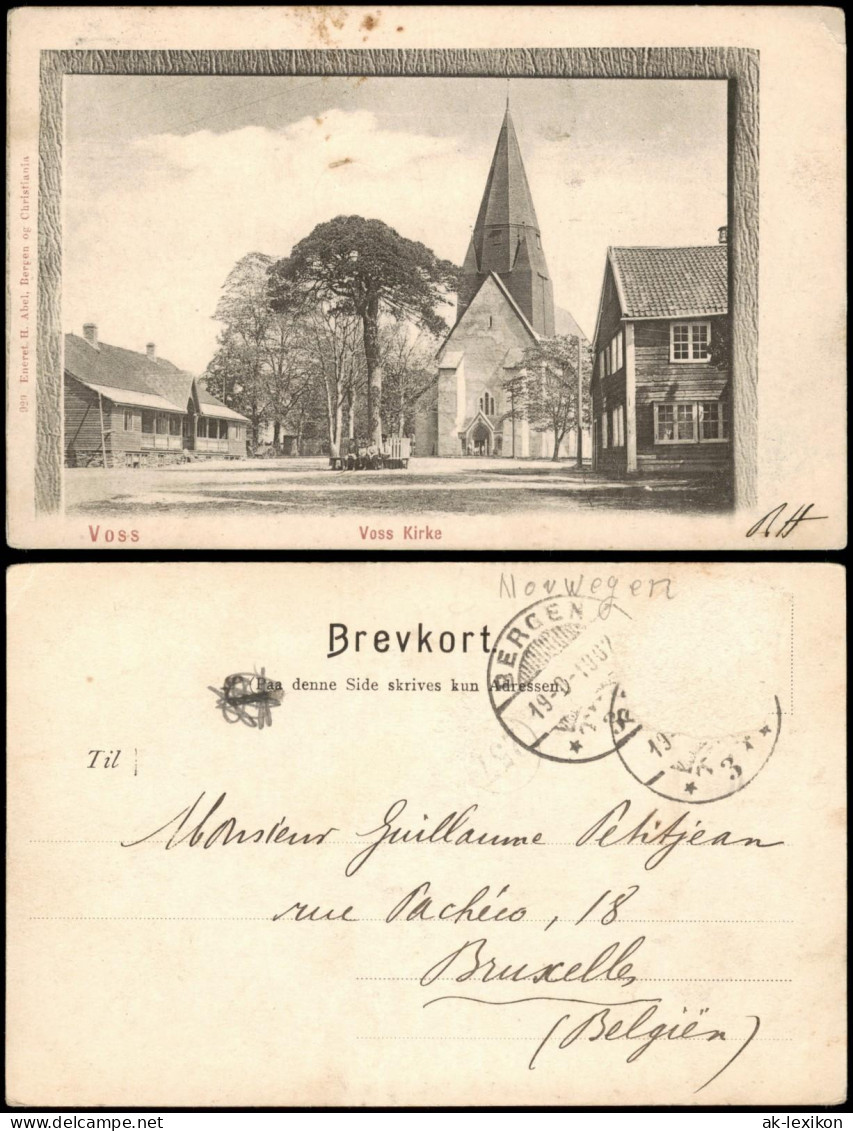 929 Eneret. H. Abel, Bergen og Christiania
Voss
Voss Kirke
RH
Norwegen
Brevkort.
BERGEN
(Paa denne Side skrives kun Adressen)
19-9-1902
19
3
Til
Monsieur Guillaume Petitjean
rue Pachéco, 18
Bruxelles
(Belgiën)
ak-lexikon